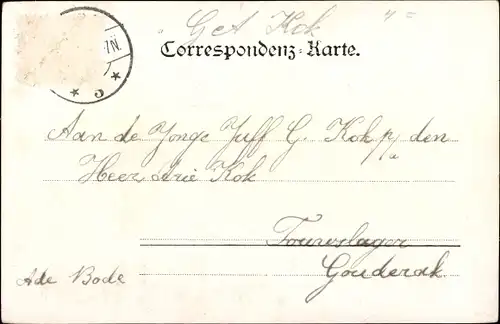 G et Kok
Correspondenz-Karte.
Aan de Jonge Juff G. Kok p/a den
Heer Arie Kok
Touwslager
Gouderak
Ade Bode